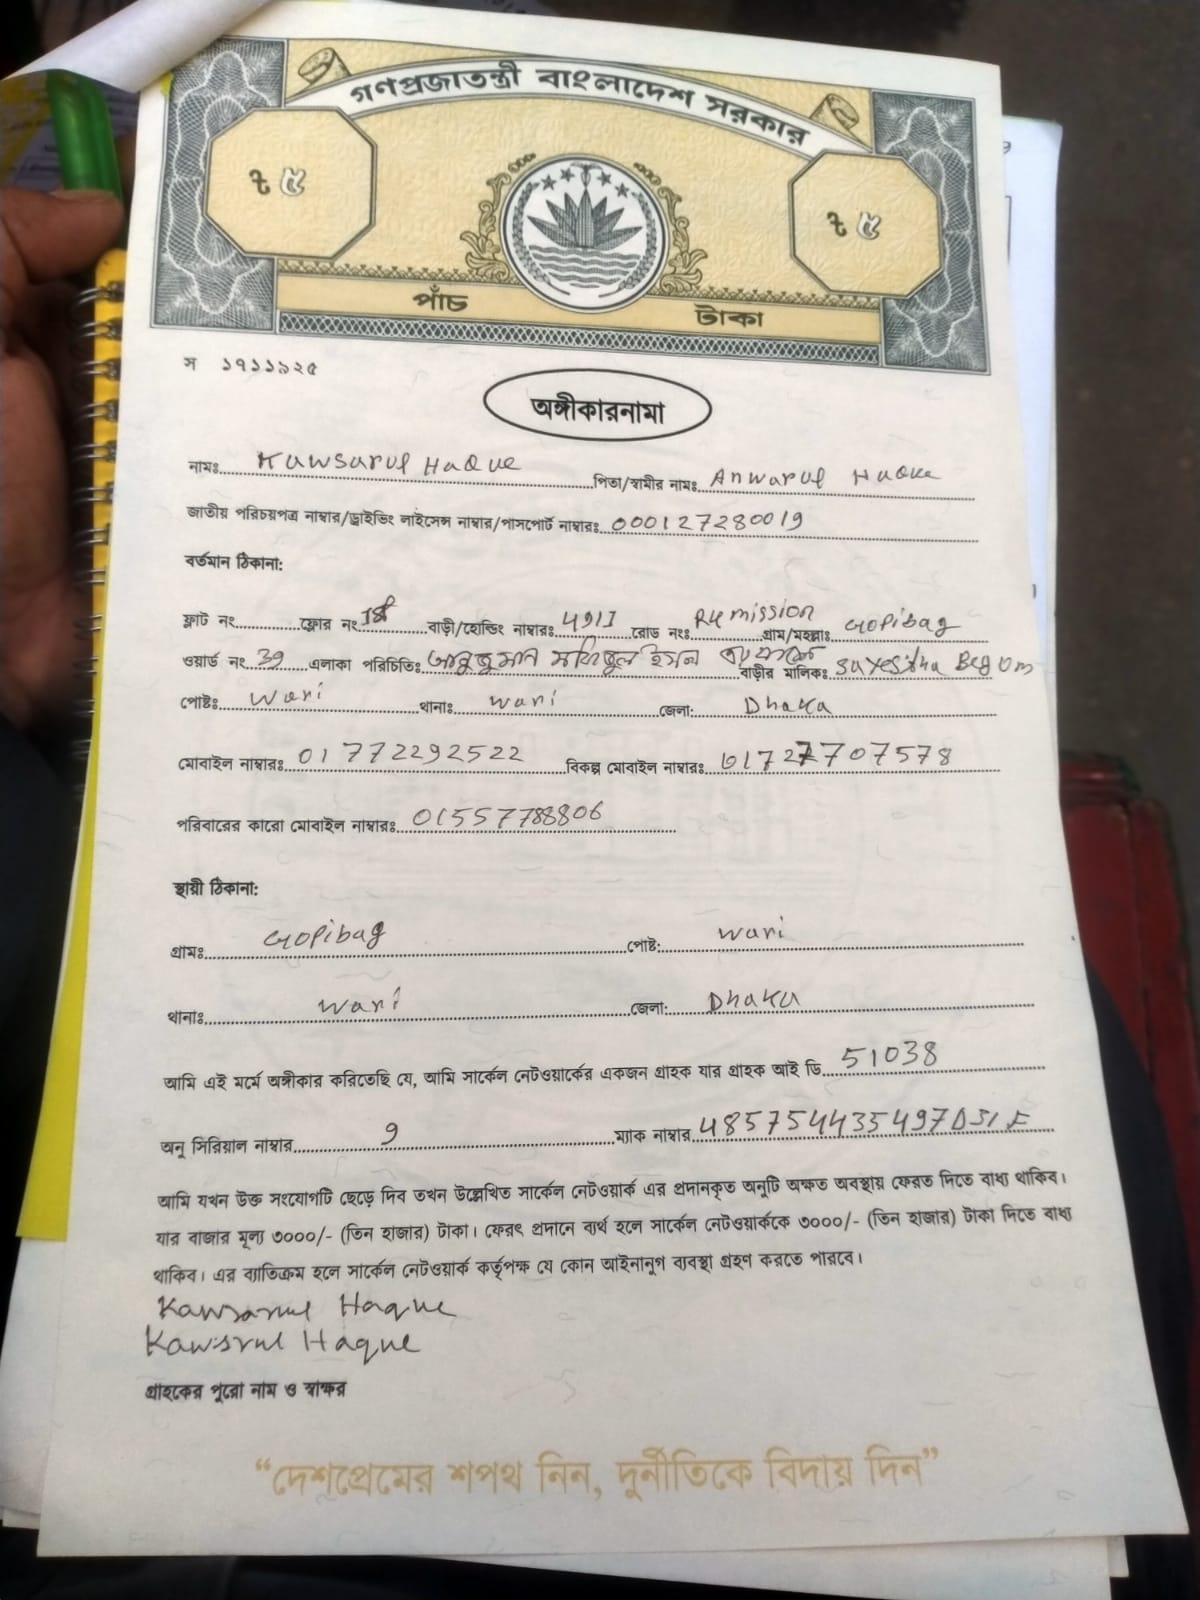 গণপ্রজাতন্ত্রী বাংলাদেশ সরকার
৳ ৫
৳ ৫
পাঁচ টাকা
স ১৭১১৯২৫
অঙ্গীকারনামা
নামঃ Kawsarul Haque পিতা/স্বামীর নামঃ Anwarul Haque
জাতীয় পরিচয়পত্র নাম্বার/ড্রাইভিং লাইসেন্স নাম্বার/পাসপোর্ট নাম্বারঃ 000127280019
বর্তমান ঠিকানা:
ফ্লাট নং ফ্লোর নং বাড়ী/হোল্ডিং নাম্বারঃ রোড নংঃ গ্রাম/মহল্লাঃ Gopibag
ওয়ার্ড নং 39 এলাকা পরিচিতিঃ বাড়ীর মালিকঃ Begum
পোষ্টঃ Wari থানাঃ Wari জেলা: Dhaka
মোবাইল নাম্বারঃ 01772292522 বিকল্প মোবাইল নাম্বারঃ
পরিবারের কারো মোবাইল নাম্বারঃ 01557788806
স্থায়ী ঠিকানা:
গ্রামঃ Gopibag পোষ্ট: Wari
থানাঃ Wari জেলা: Dhaka
আমি এই মর্মে অঙ্গীকার করিতেছি যে, আমি সার্কেল নেটওয়ার্কের একজন গ্রাহক যার গ্রাহক আই ডি 51038
অনু সিরিয়াল নাম্বার ম্যাক নাম্বার
আমি যখন উক্ত সংযোগটি ছেড়ে দিব তখন উল্লেখিত সার্কেল নেটওয়ার্ক এর প্রদানকৃত অনুটি অক্ষত অবস্থায় ফেরত দিতে বাধ্য থাকিব।
যার বাজার মূল্য ৩০০০/- (তিন হাজার) টাকা। ফেরৎ প্রদানে ব্যর্থ হলে সার্কেল নেটওয়ার্ককে ৩০০০/- (তিন হাজার) টাকা দিতে বাধ্য
থাকিব। এর ব্যাতিক্রম হলে সার্কেল নেটওয়ার্ক কর্তৃপক্ষ যে কোন আইনানুগ ব্যবস্থা গ্রহণ করতে পারবে।
Kawsarul Haque
Kawsrul Haque
গ্রাহকের পুরো নাম ও স্বাক্ষর
“দেশপ্রেমের শপথ নিন, দুর্নীতিকে বিদায় দিন”